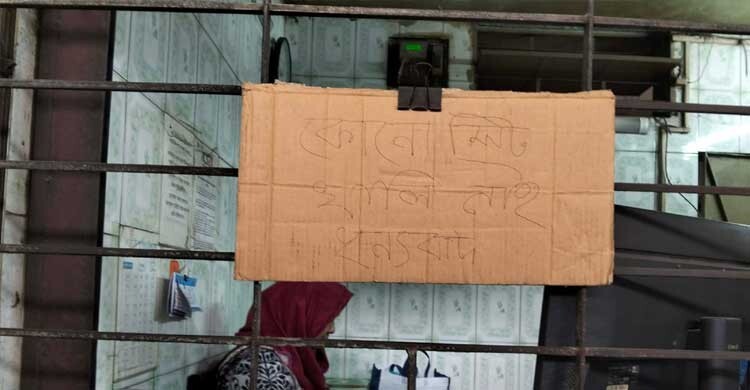 কোনো সিট
খালি নাই
ধন্যবাদ